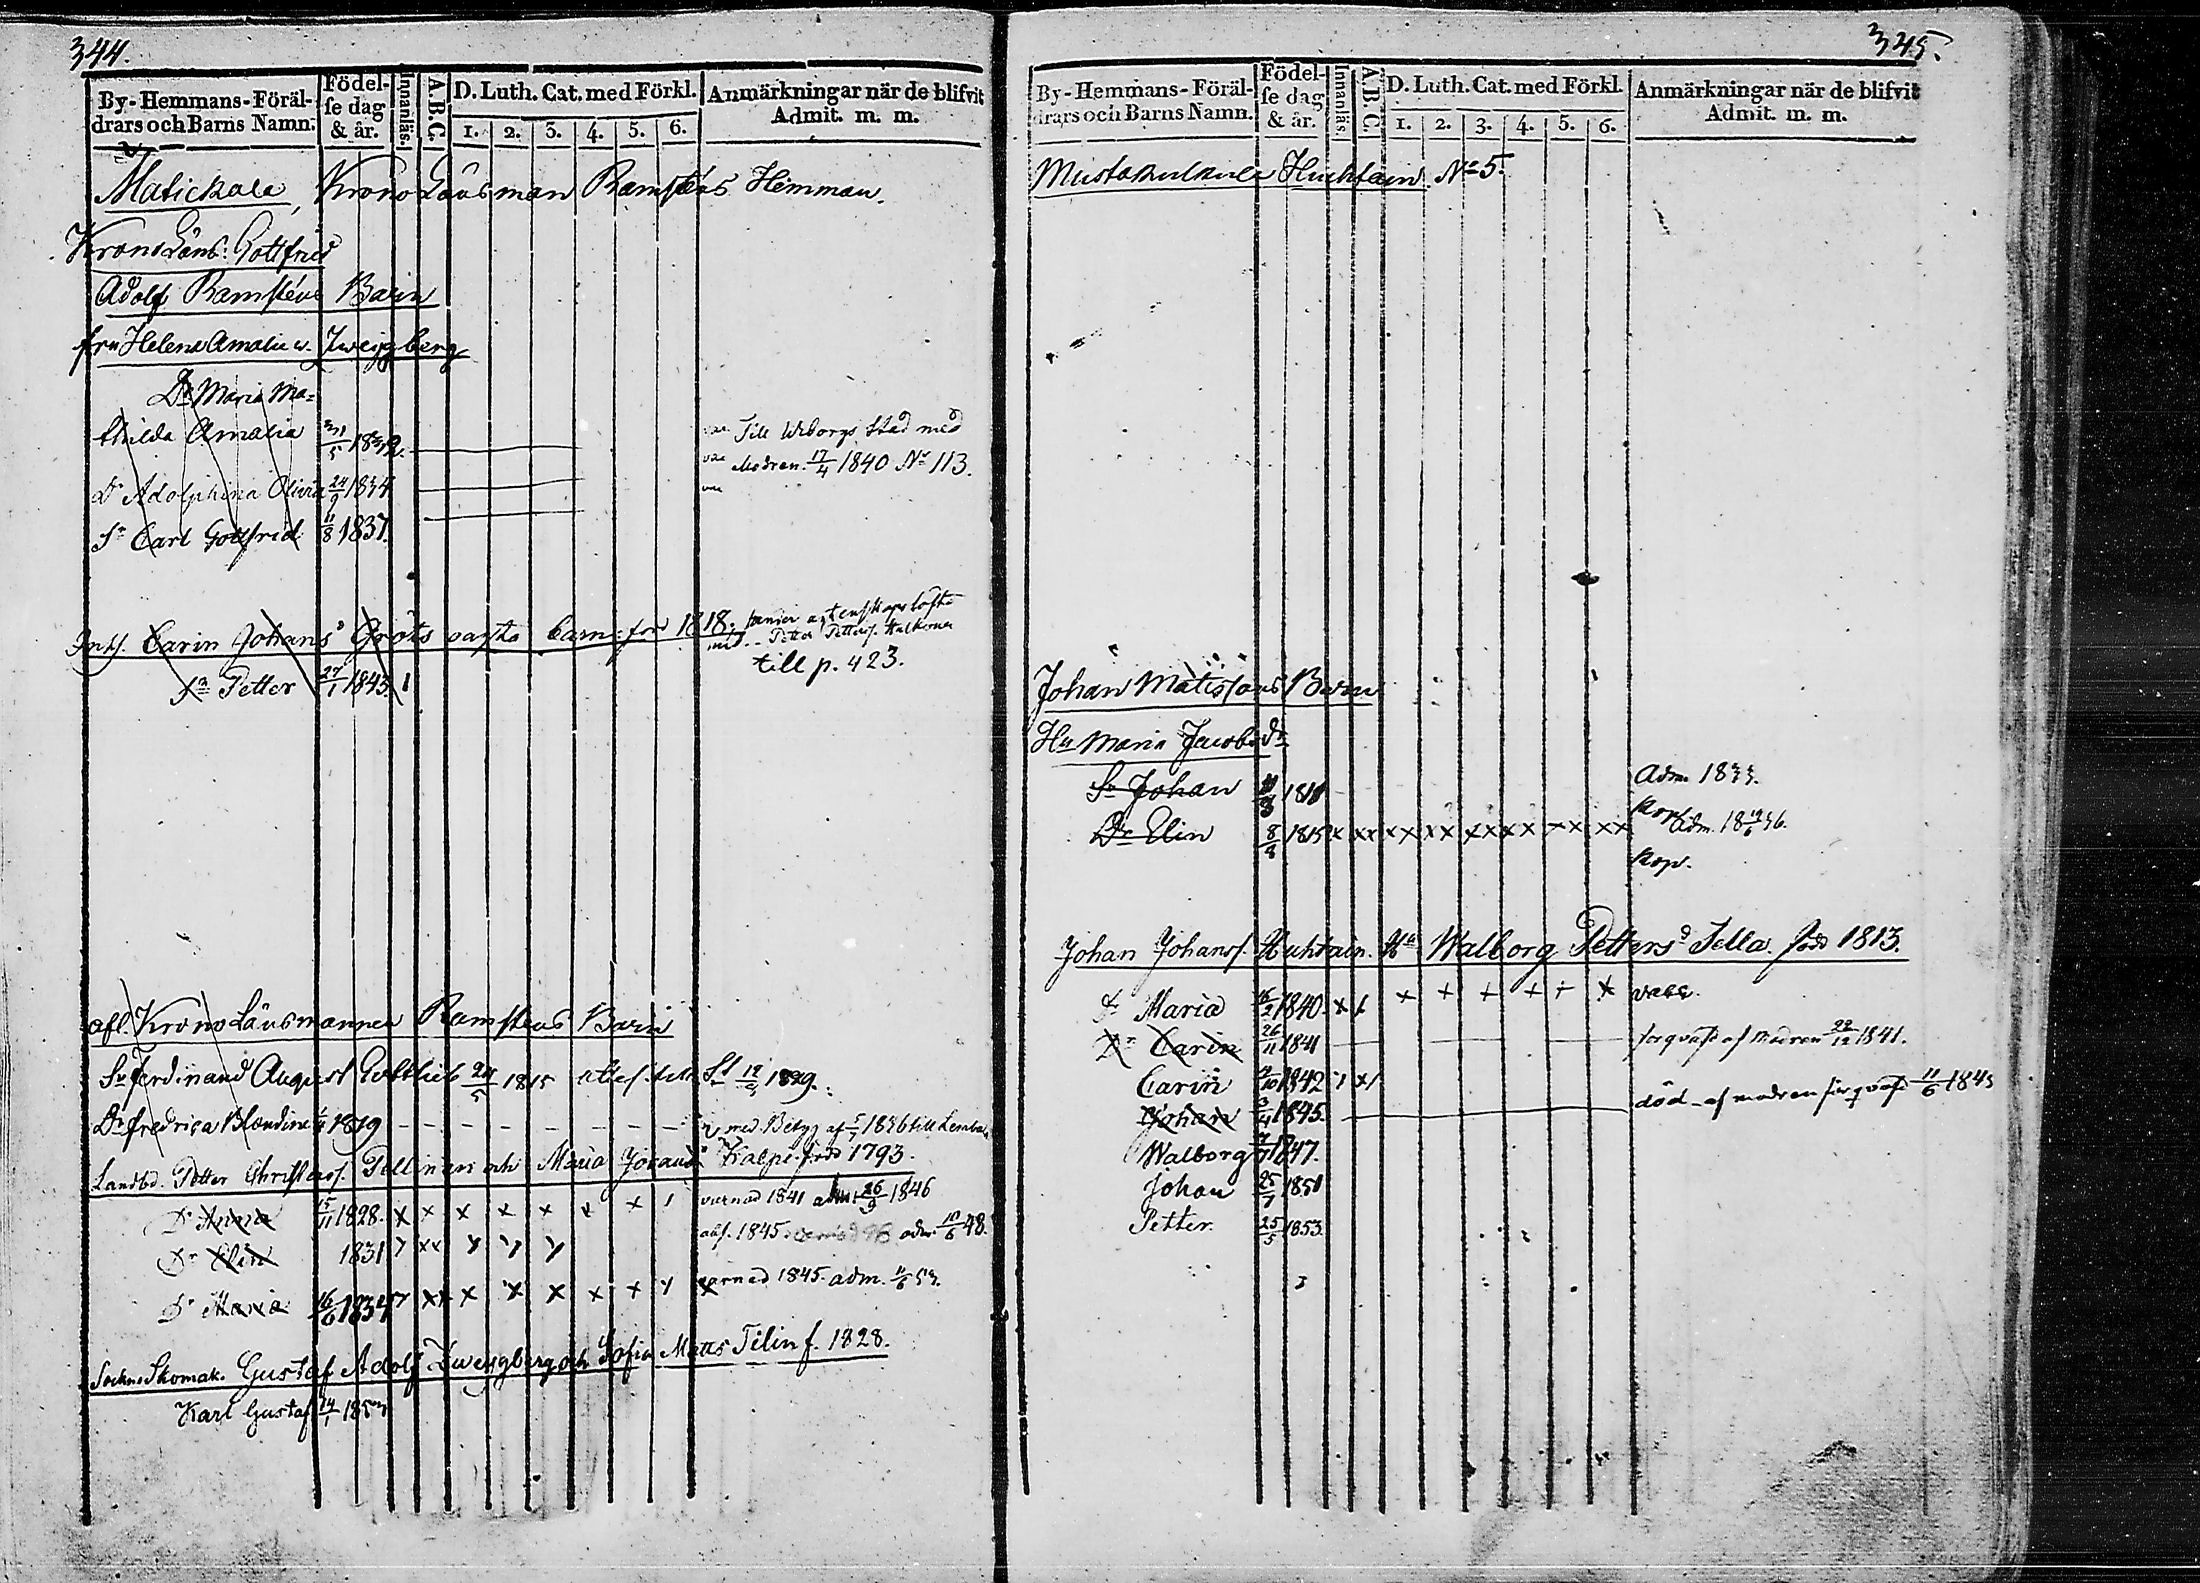 344.
By-Hemmans-Föräl-
drars och Barns Namn.
Födel-
se dag
& år.
Innanläs.
A.B.C.
D. Luth. Cat. med Förkl.
1. 2. 3. 4. 5. 6.
Anmärkningar när de blifvit
Admit. m. m.
Matickala, Krono Länsman Ramsténs Hemman.
Krono Läns: Gottfried
Adolf Ramsténs Barn
fru Helena Amalia v. Zweigberg
Dr Maria Ma=
thilda Amalia 31/5 1832. Till Wiborgs stad med
Modren 17/4 1840 No 113.
Dr Adolphina Olivia 24/9 1834
Sn Carl Gottfrid 11/8 1837.
Inhs. Carin Johansd Gröts oägta barn: född 1818.
Petter Petters.
till p. 423.
Sn Petter 27/1 1843 1
afl. Krono Länsmannen Ramstens Barn
Sn Ferdinand August Gottlieb 24/5 1815 12/9 1829.
Dr Fredrica Blondine 1819 med Betyg af 5/7 1836 till Lembala
Landbd. Petter Christers. Tellinen och Maria Jöransd Kalpe född 1793.
Dr Anna 5/11 1828. x x x x x x x 1 varnad 1841 adm 26/9 1846
Dr Elin 1831 x xx x x x abs. 1845. adm. 11/6 48.
Dr Maria 16/6 1834 x xx x x x x x x varnad 1845. adm. 11/6 53.
Sockne Skomak. Gustaf Adolf Zweygberg och Sofia Matts Tilin f. 1828.
Karl Gustaf 14/1 1853
345.
By-Hemmans-Föräl-
drars och Barns Namn.
Födel-
se dag
& år.
Innanläs.
A.B.C.
D. Luth. Cat. med Förkl.
1. 2. 3. 4. 5. 6.
Anmärkningar när de blifvit
Admit. m. m.
Mustakulkula Huhtain No 5.
Johan Matissons Barn
Hu Maria Jacobsdr
Sn Johan 1811 Adm. 1833.
kop.
Dr Elin 8/8 1815 x xx xx xx xx xx xx xx Adm. 18 19/6 36.
kop.
Johan Johans. Huhtain. Hu Walborg Pettersd Sella. född 1813.
Dr Maria 16/2 1840. x x x x x x x x vacc.
Dr Carin 26/11 1841 förqväfd af Modren 22/12 1841.
Carin 9/10 1842 1 x1
Johan 3/4 1845. död af modren förqväfd 11/6 1845
Walborg 7/7 1847.
Johan 25/7 1851
Petter. 25/5 1853.